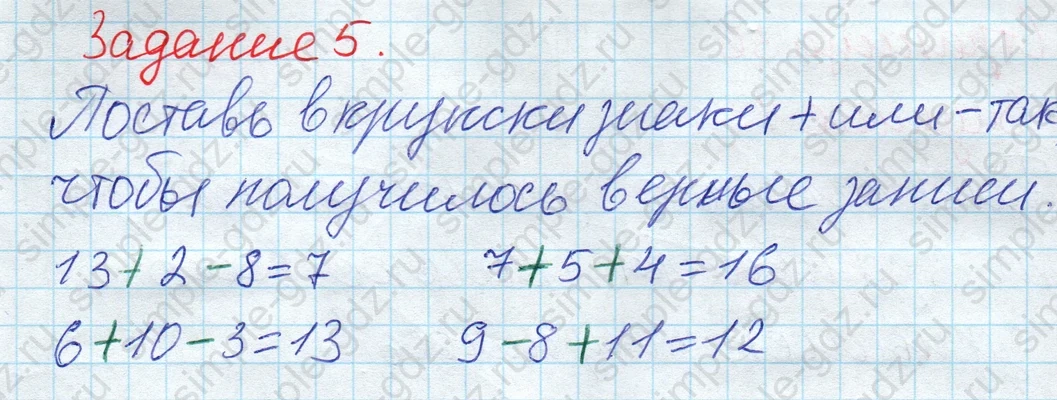 Задание 5.
Поставь в кружски знаки + или - так,
чтобы получилось верные записи.
13 + 2 - 8 = 7 7 + 5 + 4 = 16
6 + 10 - 3 = 13 9 - 8 + 11 = 12
simple-gdz.ru